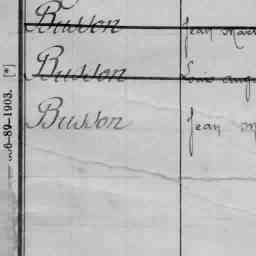 Busson Jean Mar
Busson Louis Aug
Busson Jean M
6-89-1903. [*]